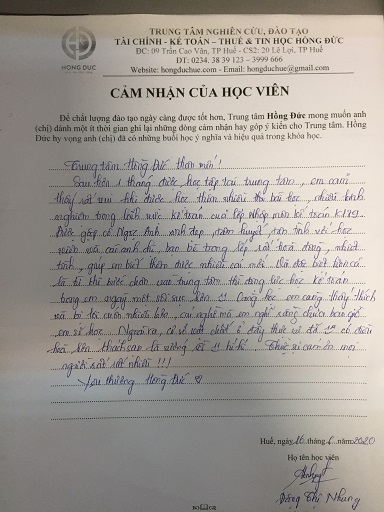 HỒNG ĐỨC
TRUNG TÂM NGHIÊN CỨU, ĐÀO TẠO
TÀI CHÍNH - KẾ TOÁN – THUẾ & TIN HỌC HỒNG ĐỨC
ĐC: 09 Trần Cao Vân, TP Huế - CS2: 20 Lê Lợi, TP Huế
ĐT: 0234. 38 39 123 – 3999 666
Website: hongduchue.com - Email: hongduchue@gmail.com
CẢM NHẬN CỦA HỌC VIÊN
Để chất lượng đào tạo ngày càng được tốt hơn, Trung tâm Hồng Đức mong muốn anh
(chị) dành một ít thời gian ghi lại những dòng cảm nhận hay góp ý kiến cho Trung tâm. Hồng
Đức hy vọng anh (chị) đã có những buổi học ý nghĩa và hiệu quả trong khóa học.
Trung tâm Hồng Đức thân mến!
Sau hơn 1 tháng được học tập tại trung tâm, em cảm
thấy rất vui khi được học thêm nhiều thứ bài học, nhiều kinh
nghiệm trong lĩnh vực kế toán của lớp nhập môn kế toán K179
Được gặp cô Ngọc Anh xinh đẹp, tâm huyết, tận tình với học
viên và cả anh chị, bạn bè trong lớp rất hòa đồng, nhiệt
tình, giúp em biết thêm được nhiều cái mới. Và đặc biệt hơn cả
là từ khi bước chân vào trung tâm thì động lực học kế toán
trong em ngày một sôi sục hơn. Càng học em càng thấy thích
và bị lôi cuốn nhiều hơn, cái nghề mà em nghĩ rằng chưa bao giờ
em sẽ học. Ngoài ra, cơ sở vật chất ở đây thực vô đã có điều
hòa
người rất rất nhiều!!!
Yêu thương Hồng Đức ♡
Huế, ngày 16 tháng 6 năm 2020
Họ tên học viên
Đặng Thị Nhung